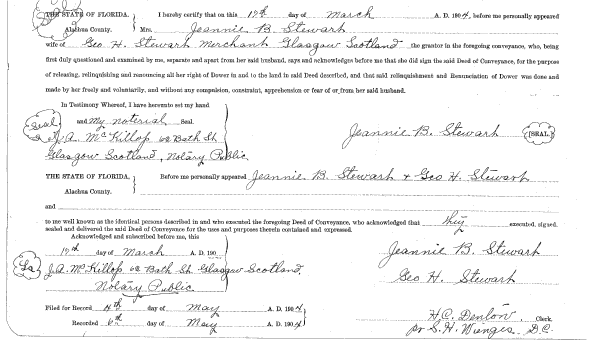 Seal
THE STATE OF FLORIDA. } I hereby certify that on this 17th day of March A. D. 1904, before me personally appeared
Alachua County. Mrs. Jeannie B. Stewart
wife of Geo. H. Stewart Merchant Glasgow Scotland the grantor in the foregoing conveyance, who, being
first duly questioned and examined by me, separate and apart from her said husband, says and acknowledges before me that she did sign the said Deed of Conveyance, for the purpose
of releasing, relinquishing and renouncing all her right of Dower in and to the land in said Deed described, and that said relinquishment and Renunciation of Dower was done and
made by her freely and voluntarily, and without any compulsion, constraint, apprehension or fear of or from her said husband.
In Testimony Whereof, I have hereunto set my hand
and my noterial Seal.
Seal
J. A. McKillop 62 Bath St. Jeannie B. Stewart [SEAL]
Glasgow Scotland, Notary Public
THE STATE OF FLORIDA. } Before me personally appeared Jeannie B. Stewart & Geo H. Stewart
Alachua County.
and
to me well known as the identical persons described in and who executed the foregoing Deed of Conveyance, who acknowledged that they executed, signed,
sealed and delivered the said Deed of Conveyance for the uses and purposes therein contained and expressed.
Acknowledged and subscribed before me, this
17th day of March A. D. 190 Jeannie B. Stewart
J. A. McKillop 62 Bath St. Glasgow Scotland,
Notary Public Geo H. Stewart
Filed for Record 4th day of May A. D. 1904 H. C. Denton Clerk.
Recorded 6th day of May A. D. 1904 pr S. H. Wienges D. C.